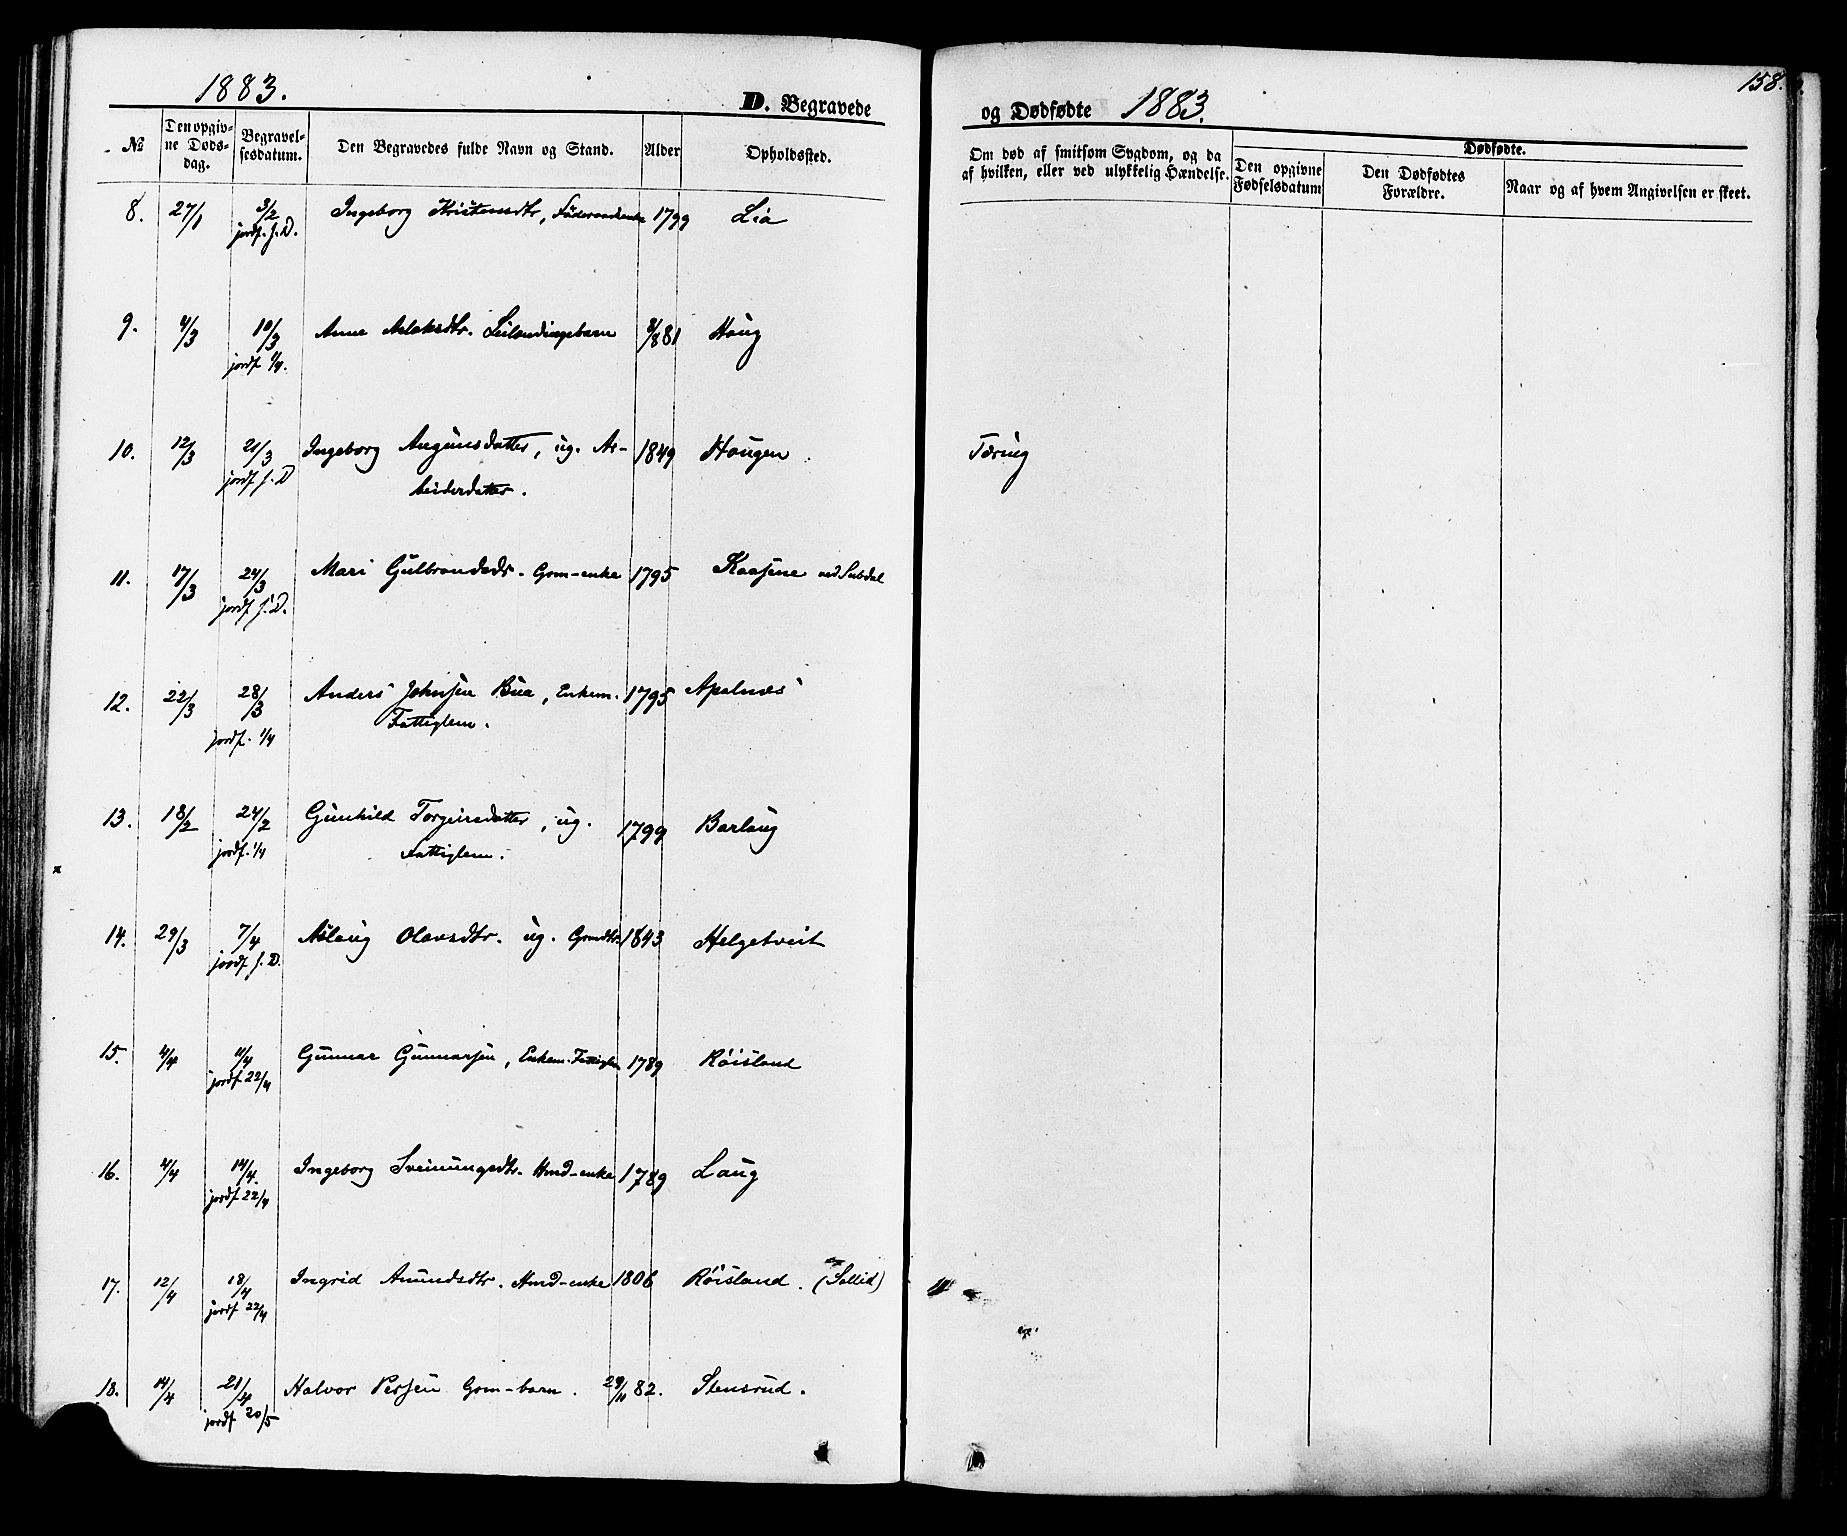 1883.
D. Begravede
№
Den opgivne Dødsdag.
Begravelsesdatum.
Den Begravedes fulde Navn og Stand.
Alder
Opholdssted.
8. 27/1 3/2 Ingeborg Kristensdtr, 1799 Lia
jordf. s. D.
9. 4/3 10/3 Anne Aslaksdtr. Leilændingsbarn 8/8 81 Haug
jordf 1/4.
10. 12/3 21/3 Ingeborg Augunsdatter, ug. Ar- 1849 Haugen
jordf s. D beiderdatter.
11. 17/3 24/3 Mari Gulbrandsds. Grm-enke 1795 Kaasene ved
jordf s. D.
12. 22/3 28/3 Anders Johnsen Bua, Enkem. 1795 Apalnæs
jordf. 1/4 Fattiglem.
13. 18/2 24/2 Gunhild Torgeirsdatter, ug. 1799 Barlaug
jordf. 1/4 Fattiglem.
14. 29/3 7/4 Aslaug Olavsdtr. ug. Grmdtr 1843 Helgetveit
jordf s. D.
15. 4/4 11/4 Gunnar Gunnarsen, Enkem. Fattiglm 1789 Røisland
jordf 22/4
16. 4/4 14/4. Ingeborg Sveinungsdtr. Hmd-enke 1789 Laug
jordf 22/4
17. 12/4 18/4 Ingrid Amundsdtr. Hmd-enke 1806 Røisland. (Sollid)
jordf 22/4
18. 14/4 21/4 Halvor Persen Grm-barn. 29/11 82. Stensrud.
jordf 20/5
158.
og Dødfødte 1883.
Om død af smitsom Sygdom, og da
af hvilken, eller ved ulykkelig Hændelse.
Dødfødte.
Den opgivne
Fødselsdatum
Den Dødfødtes
Forældre.
Naar og af hvem Angivelsen er skeet.
Tæring